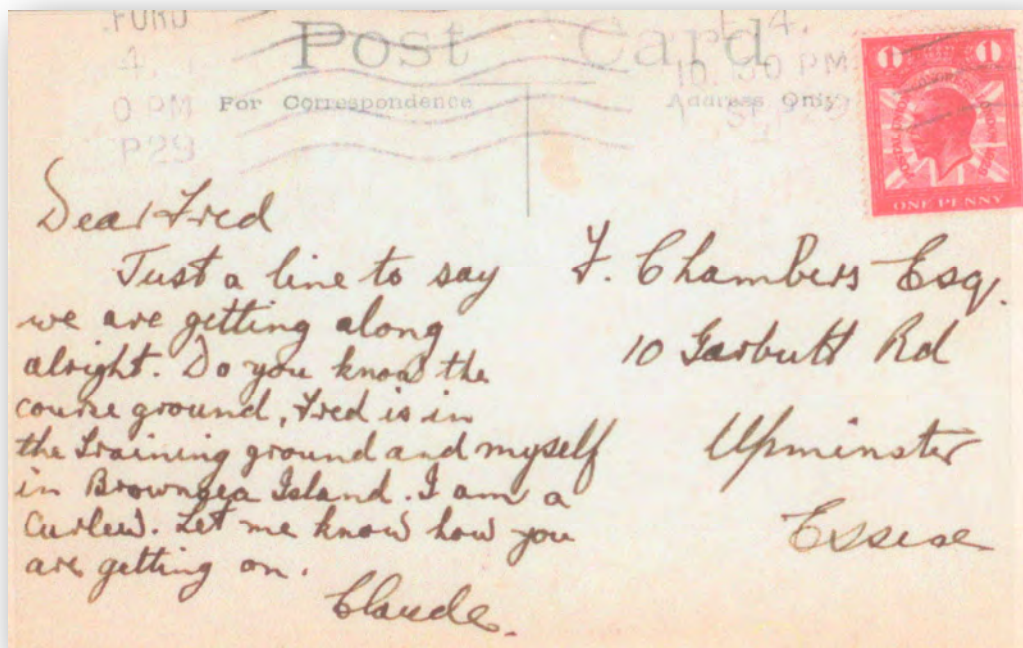 .FORD
4.
0 PM
P29
Post Card
10. 30 PM
For Correspondence
Address Only
1
1
ONE PENNY
Dear Fred
Just a line to say
we are getting along
alright. Do you know the
course ground, Fred is in
the training ground and myself
in Brownsea Island. I am a
Curlew. Let me know how you
are getting on.
Claude.
F. Chambers Esq.
10 Garbutt Rd
Upminster
Essex